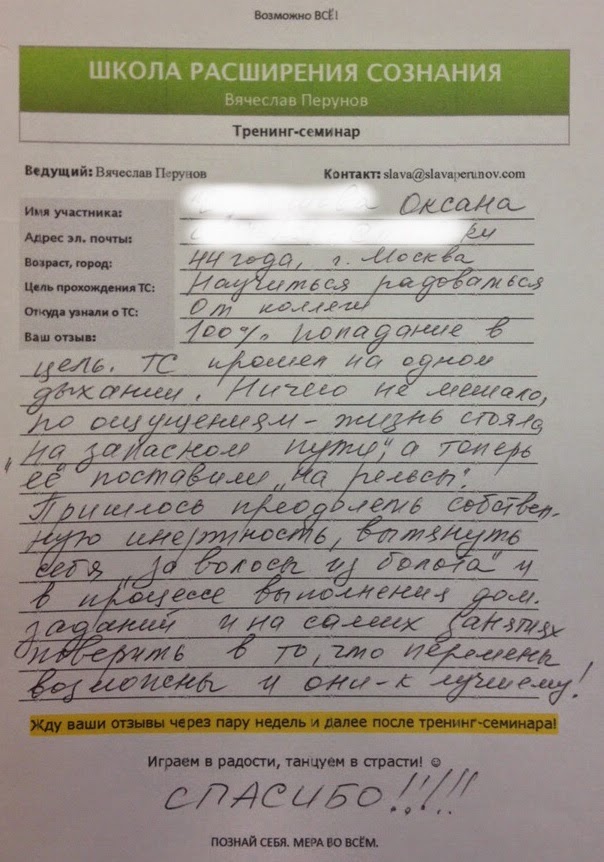 Возможно ВСЁ!
ШКОЛА РАСШИРЕНИЯ СОЗНАНИЯ
Вячеслав Перунов
Тренинг-семинар
Ведущий: Вячеслав Перунов Контакт: slava@slavaperunov.com
Имя участника: Оксана
Адрес эл. почты:
Возраст, город: 44 года, г. Москва
Цель прохождения ТС: Научиться радоваться
Откуда узнали о ТС: От коллеги
Ваш отзыв: 100% попадание в
цель. ТС прошел на одном
дыхании. Ничего не мешало,
по ощущениям - жизнь стояла
„на запасном пути", а теперь
её поставили „на рельсы".
Пришлось преодолеть собствен-
ную инертность, вытянуть
себя „за волосы из болота" и
в процессе выполнения дом.
заданий и на самих занятиях
поверить в то, что перемены
возможны и они - к лучшему!
Жду ваши отзывы через пару недель и далее после тренинг-семинара!
Играем в радости, танцуем в страсти! ☺
СПАСИБО!!!!!
ПОЗНАЙ СЕБЯ. МЕРА ВО ВСЁМ.